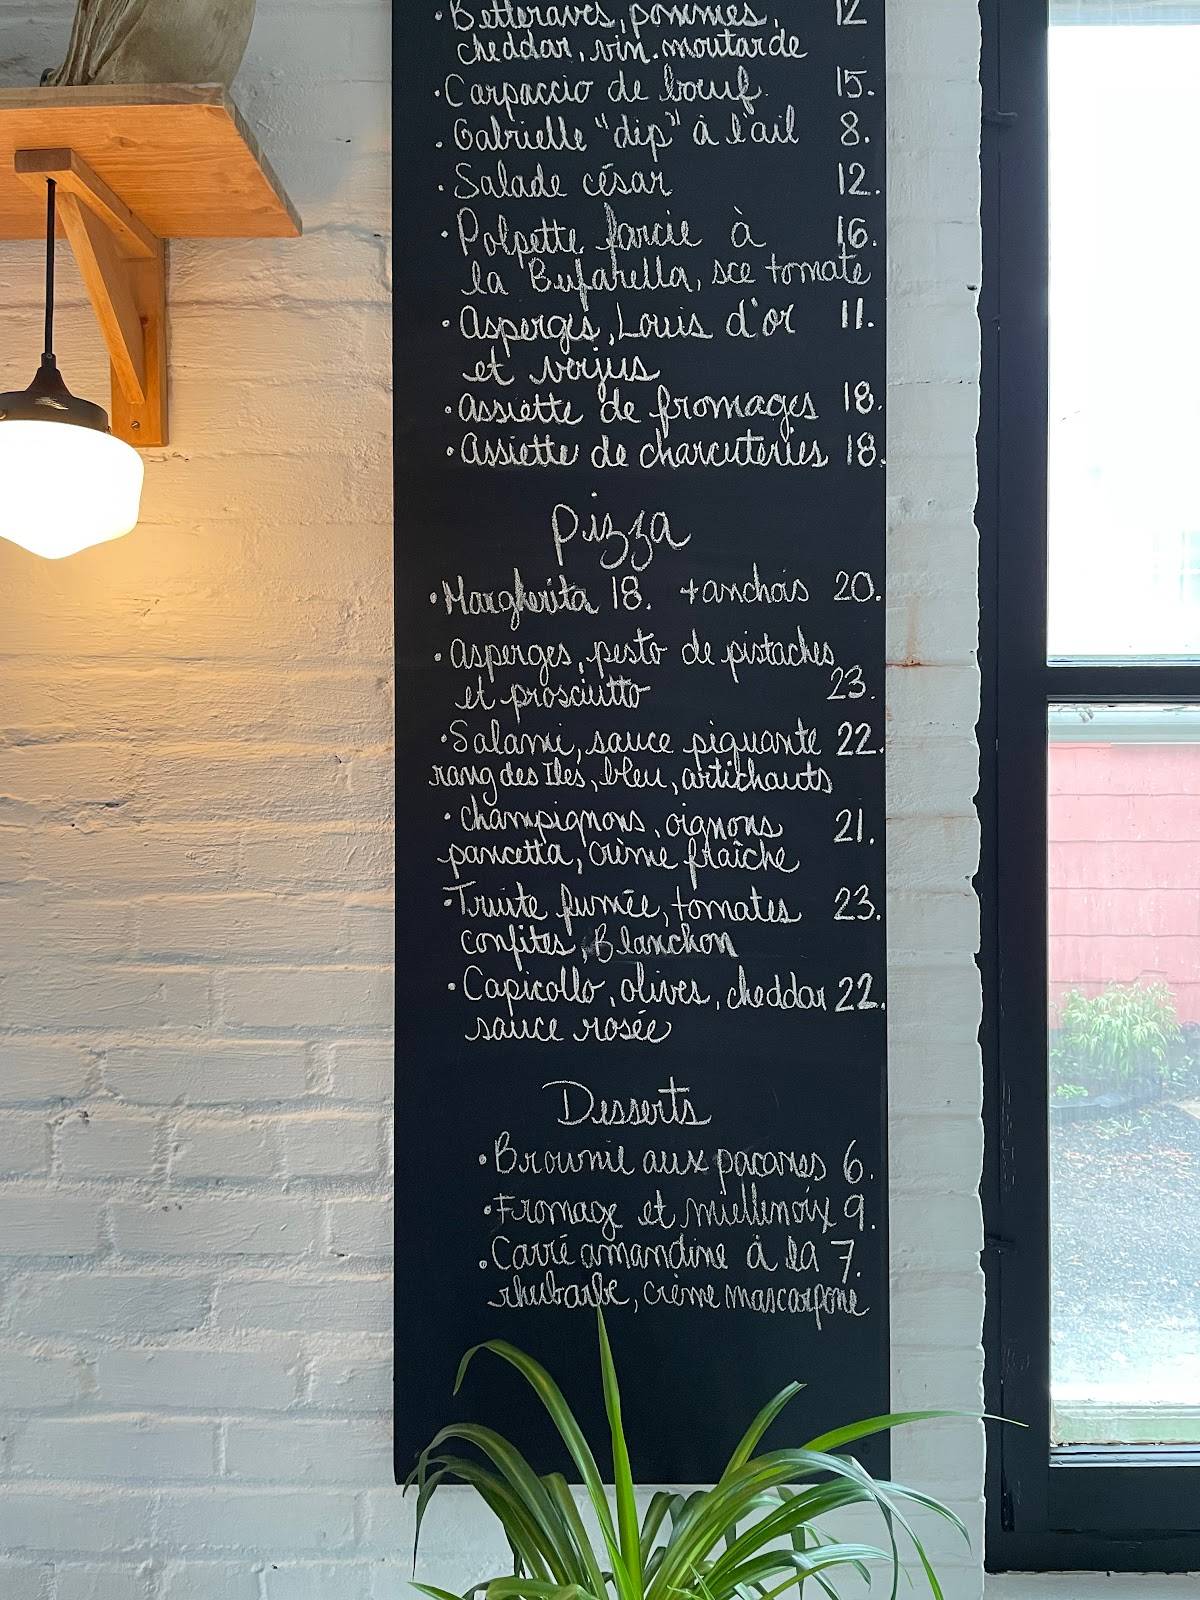 · Betteraves, pommes, 12
cheddar, vin. moutarde
· Carpaccio de boeuf 15.
· Gabrielle "dip" à l'ail 8.
· Salade césar 12.
· Polpette farcie à 16.
la Bufarella, sce tomate
· Asperges, Louis d'or 11.
et verjus
· Assiette de fromages 18.
· Assiette de charcuteries 18.
Pizza
· Margherita 18. + anchois 20.
· Asperges, pesto de pistaches
et prosciutto 23.
· Salami, sauce piquante 22.
rang des Iles, bleu, artichauts
· Champignons, oignons 21.
pancetta, crème fraîche
· Truite fumée, tomates 23.
confites, Blanchon
· Capicollo, olives, cheddar 22.
sauce rosée
Desserts
· Brownie aux pacanes 6.
· Fromage et miellenoix 9.
· Carré amandine à la 7.
rhubarbe, crème mascarpone